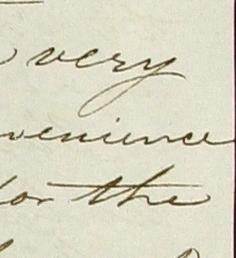 very
venience
for the